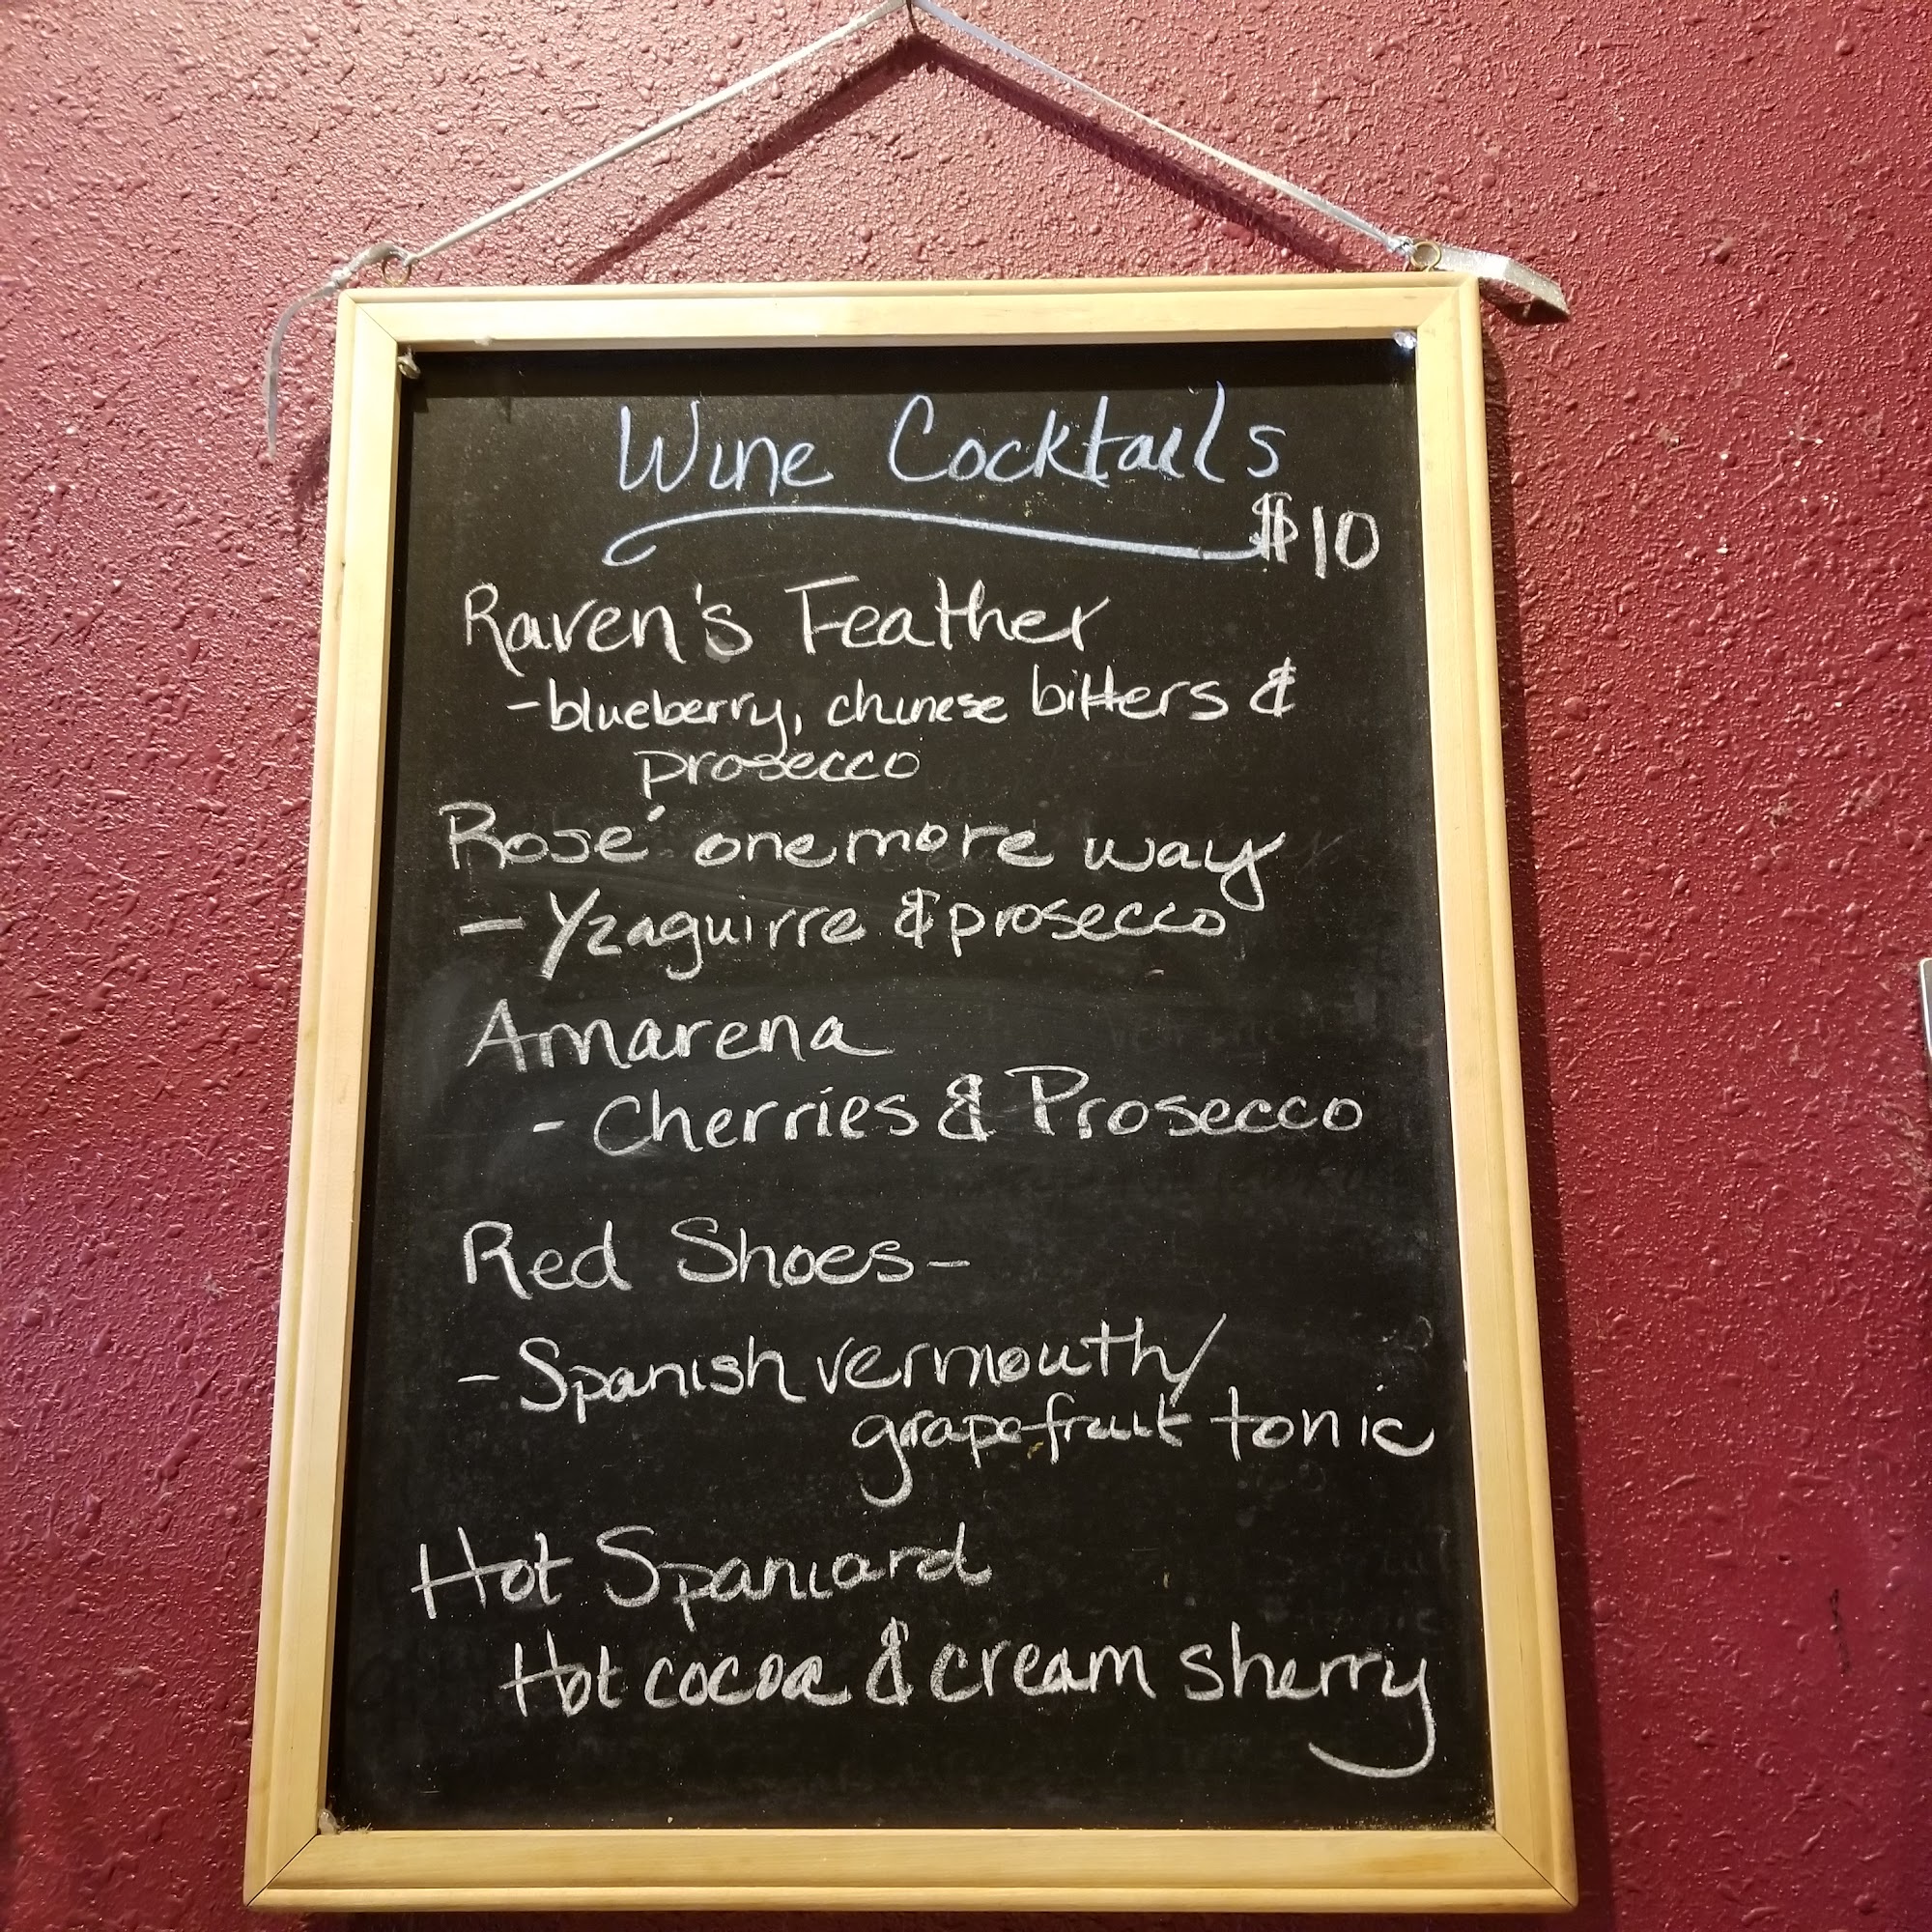 Wine Cocktails
$10
Raven's Feather
-blueberry, chinese bitters &
prosecco
Rosé one more way
- Yzaguirre & prosecco
Amarena
- Cherries & Prosecco
Red Shoes-
- Spanish vermouth/
grapefruit tonic
Hot Spaniard
Hot cocoa & cream sherry